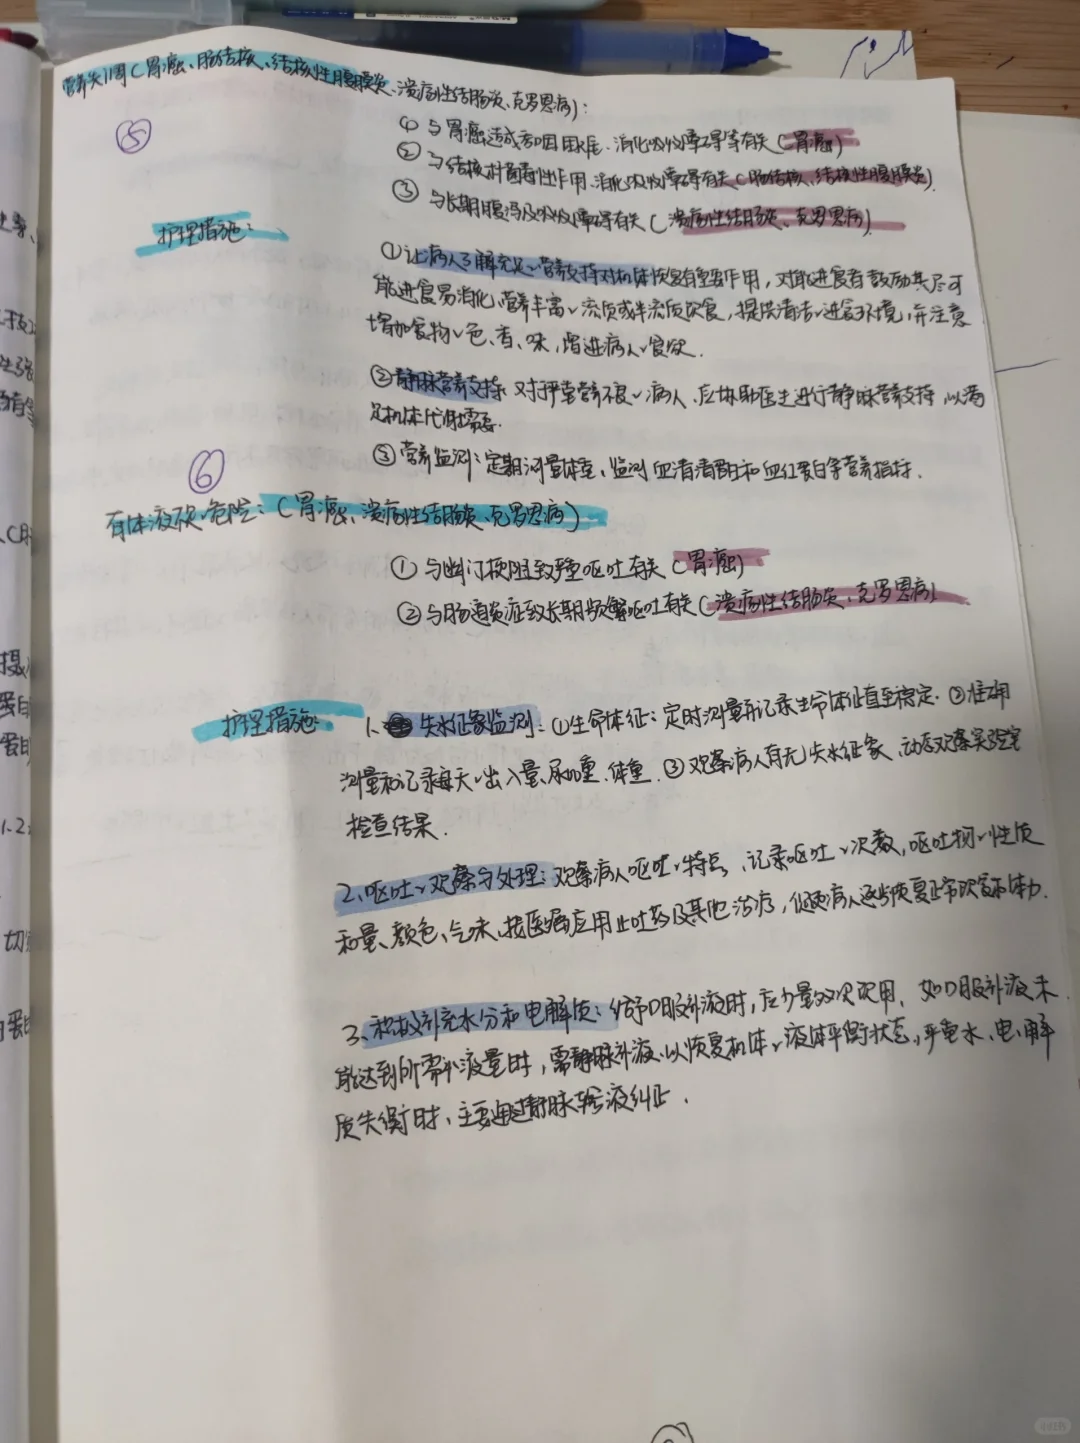 营养失调(胃癌、肠结核、结核性腹膜炎、溃疡性结肠炎、克罗恩病):
⑤
① 与胃癌造成吞咽困难、消化吸收障碍等有关(胃癌)
② 与结核杆菌毒性作用、消化吸收障碍有关(肠结核、结核性腹膜炎).
③ 与长期腹泻及吸收障碍有关(溃疡性结肠炎、克罗恩病).
护理措施:
①让病人了解充足、营养支持对机体恢复有重要作用,对能进食者鼓励其尽可
能进食易消化、营养丰富、流质或半流质饮食,提供清洁、进食环境,并注意
增加食物、色、香、味,增进病人、食欲.
②静脉营养支持:对严重营养不良、病人,应协助医生进行静脉营养支持,以满
足机体代谢需要.
③营养监测:定期测量体重、监测血清清蛋白和血红蛋白等营养指标.
⑥
有体液不足、危险:(胃癌、溃疡性结肠炎、克罗恩病)
① 与幽门梗阻致严重呕吐有关(胃癌)
② 与肠道炎症致长期频繁呕吐有关(溃疡性结肠炎、克罗恩病)
护理措施:
1、失水征象监测:①生命体征:定时测量和记录生命体征直至稳定.②准确
测量和记录每天、出入量、尿比重、体重.③观察病人有无失水征象、动态观察实验室
检查结果.
2、呕吐、观察与处理:观察病人呕吐、特点、记录呕吐、次数,呕吐物、性质
和量、颜色、气味、按医嘱应用止吐药及其他治疗,促使病人逐步恢复正常饮食和体力.
3、积极补充水分和电解质:给予口服补液时,应少量多次饮用、如口服补液未
能达到所需补液量时,需静脉补液、以恢复机体、液体平衡状态,严重水、电解
质失衡时、主要通过静脉输液纠正.